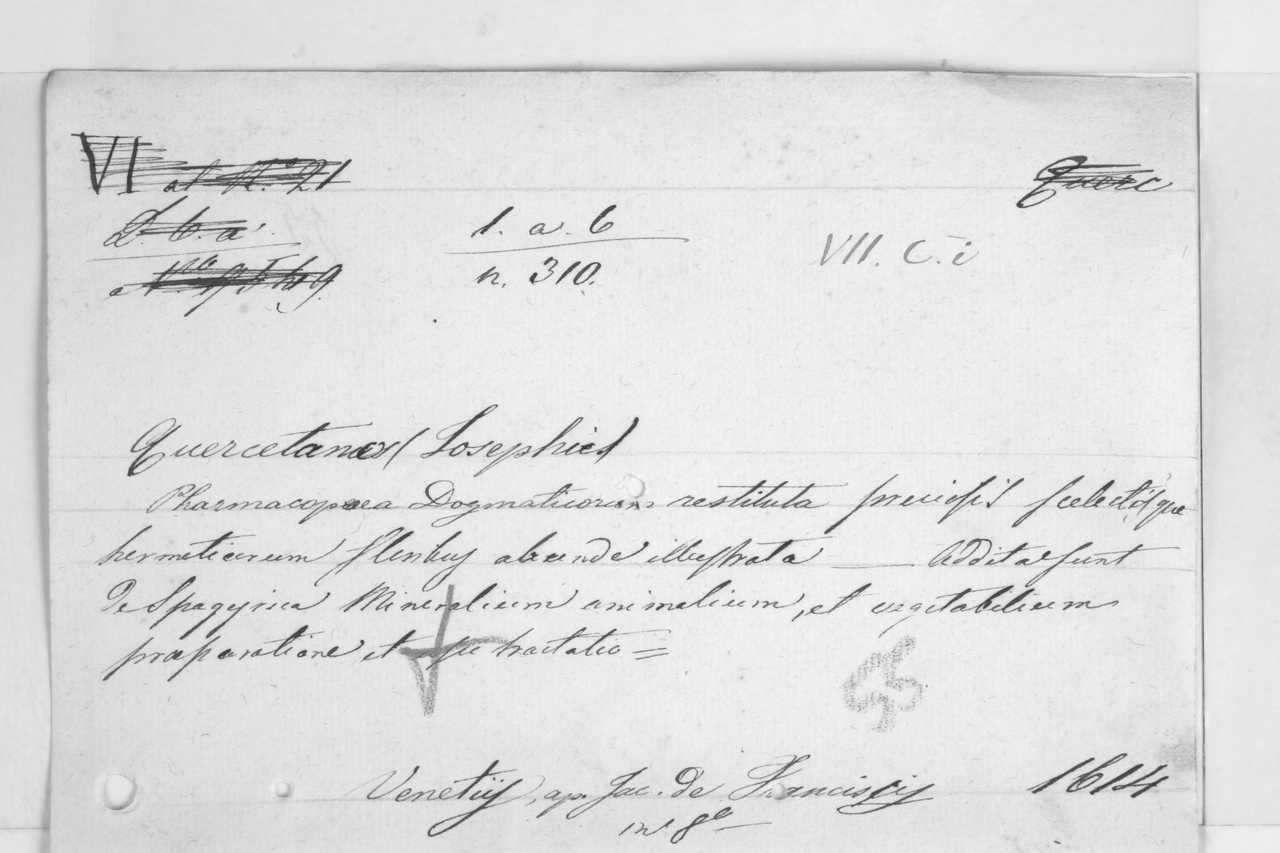 VI al N.º 21
Querc
D. 6. a.
1. a. 6
VII. C. i
n. 310.
Quercetanus (Josephus)
Pharmacopoea Dogmaticorum restituta preciosis selectisque
hermeticorum abunde illustrata — Additae sunt
de Spagyrica Mineralium animalium, et vegetabilium
praeparatione et tractatio =
Venetijs, ap. Jac. de Franciscis 1614
in 8º